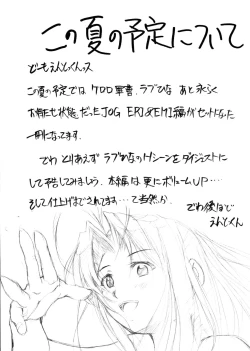 この夏の予定について
どーもえんとくんス
この夏の予定では ケロロ軍曹、ラブひな あと永らく
お待たせ状態だったJOG ERI&EMI編がセットになった
一冊になってます。
でわ とりあえず ラブひなのHシーンをダイジェストに
してお告してみましょう。本編は更にボリュームUP…
そして仕上げまでされてます…て当然か。
でわ後ほど
えんとくん